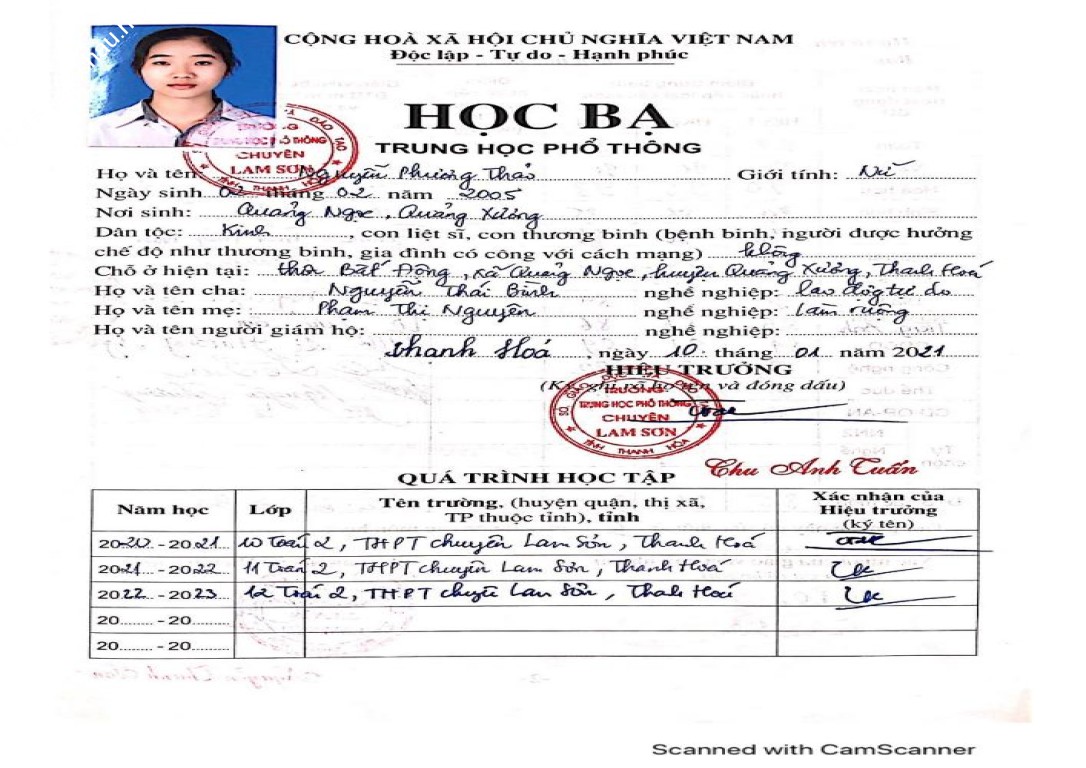 CỘNG HOÀ XÃ HỘI CHỦ NGHĨA VIỆT NAM
Độc lập - Tự do - Hạnh phúc
HỌC BẠ
TRUNG HỌC PHỔ THÔNG
TRUNG HỌC PHỔ THÔNG
CHUYÊN
LAM SƠN
TỈNH THANH HÓA
Họ và tên: Nguyễn Phương Thảo Giới tính: Nữ
Ngày sinh 02 tháng 02 năm 2005
Nơi sinh: Quảng Ngọc, Quảng Xương
Dân tộc: Kinh, con liệt sĩ, con thương binh (bệnh binh, người được hưởng
chế độ như thương binh, gia đình có công với cách mạng) không
Chỗ ở hiện tại: thôn Bất Động, xã Quảng Ngọc, huyện Quảng Xương, Thanh Hoá
Họ và tên cha: Nguyễn Thái Bình nghề nghiệp: lao động tự do
Họ và tên mẹ: Phạm Thị Nguyên nghề nghiệp: làm ruộng
Họ và tên người giám hộ: nghề nghiệp:
Thanh Hoá, ngày 10 tháng 01 năm 2021
HIỆU TRƯỞNG
(Ký, ghi rõ họ tên và đóng dấu)
SỞ GIÁO DỤC VÀ ĐÀO TẠO
TRƯỜNG
TRUNG HỌC PHỔ THÔNG
CHUYÊN
LAM SƠN
TỈNH THANH HÓA
Chu Anh Tuấn
QUÁ TRÌNH HỌC TẬP
Năm học Lớp Tên trường, (huyện quận, thị xã, TP thuộc tỉnh), tỉnh Xác nhận của Hiệu trưởng (ký tên)
2020 - 2021 10 Toán 2, THPT chuyên Lam Sơn, Thanh Hoá
2021 - 2022 11 Toán 2, THPT chuyên Lam Sơn, Thanh Hoá
2022 - 2023 12 Toán 2, THPT chuyên Lam Sơn, Thanh Hoá
20........ - 20........
20........ - 20........
Scanned with CamScanner